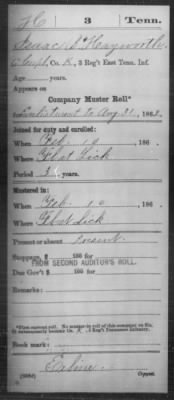 H | 3 | Tenn.
Isaac S. Hayworth
Corpl, Co. K, 3 Reg't East Tenn. Inf.
Age years.
Appears on
Company Muster Roll*
for Enlistment to Aug 31, 1862.
Joined for duty and enrolled:
When Feb 10, 186
Where Flat Lick
Period 3 years.
Mustered in:
When Feb 10, 186
Where Flat Lick
Present or absent Present
Stoppage, $ 100 for
FROM SECOND AUDITOR'S ROLL.
Due Gov't $ 100 for
Remarks:
*First current roll. No muster-in roll of this company on file. It subsequently became Co. K, 3 Reg't Tennessee Infantry.
Book mark:
(358d) Copyist.